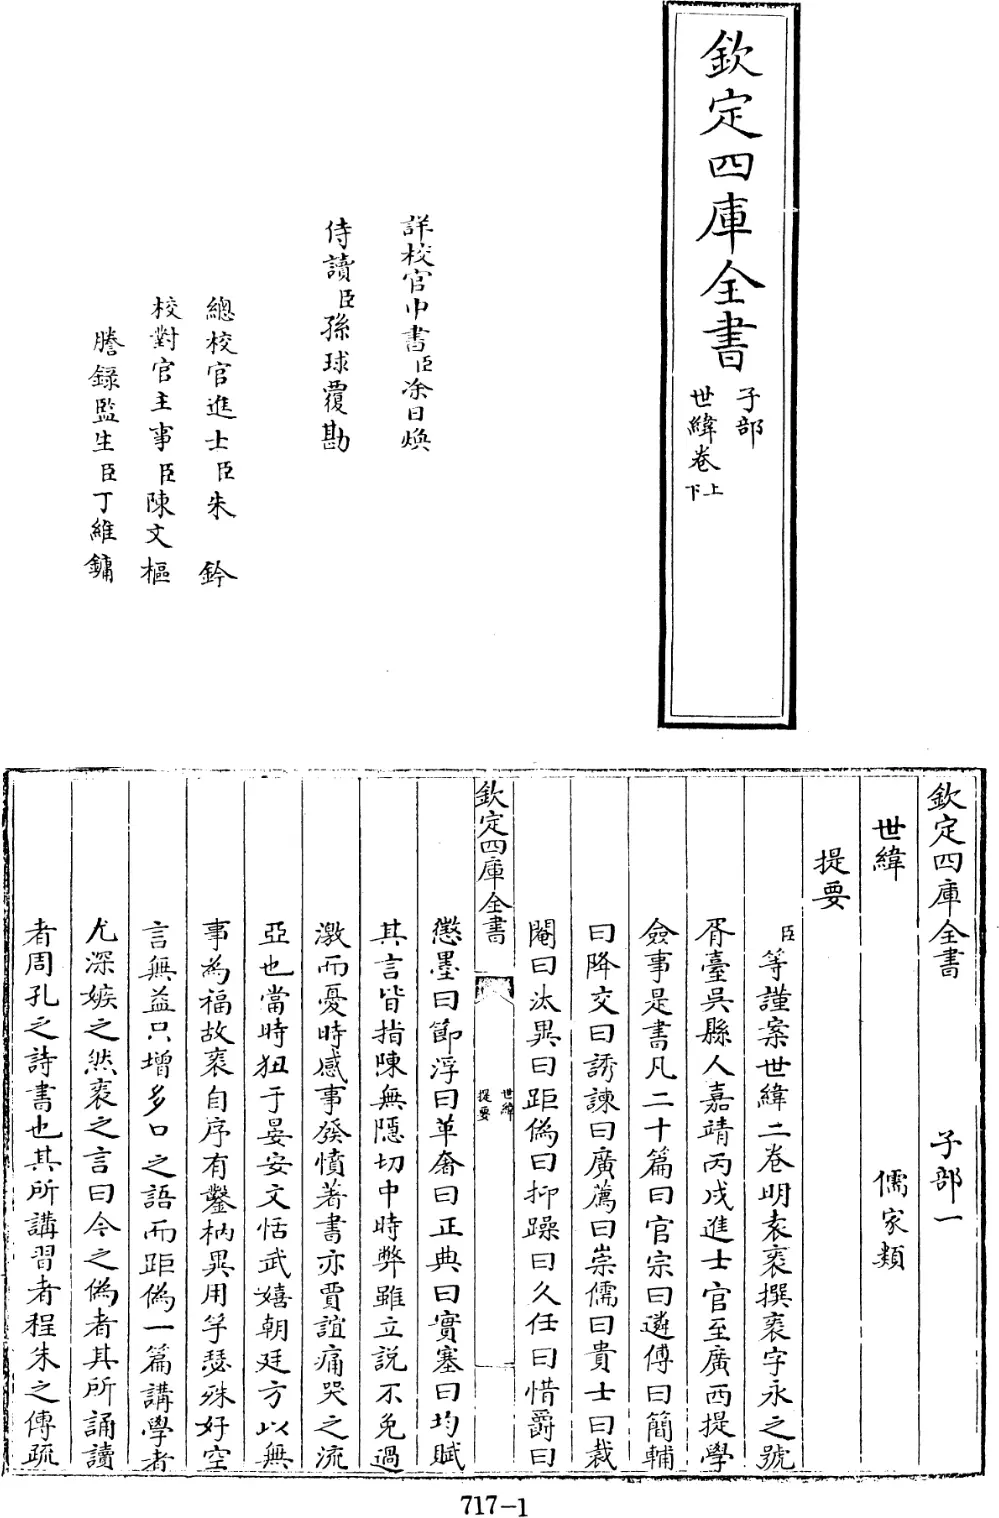 欽定四庫全書
子部
世緯卷上
下
詳校官中書臣涂日煥
侍讀臣孫球覆勘
總校官進士臣朱鈐
校對官主事臣陳文樞
謄錄監生臣丁維鏞
欽定四庫全書 子部一
世緯 儒家類
提要
臣等謹案世緯二卷明袁袠撰袠字永之號
胥臺吳縣人嘉靖丙戌進士官至廣西提學
僉事是書凡二十篇曰官宗曰遴傅曰簡輔
曰降交曰誘諫曰廣薦曰崇儒曰貴士曰裁
閹曰汰異曰距偽曰抑躁曰久任曰惜爵曰
欽定四庫全書
世緯
提要
懲墨曰節浮曰革奢曰正典曰實塞曰均賦
其言皆指陳無隱切中時弊雖立說不免過
激而憂時感事發憤著書亦賈誼痛哭之流
亞也當時狃于晏安文恬武嬉朝廷方以無
事為福故袠自序有鑿枘異用竽瑟殊好空
言無益只增多口之語而距偽一篇講學者
尤深嫉之然袠之言曰今之偽者其所誦讀
者周孔之詩書也其所講習者程朱之傳疏
717-1